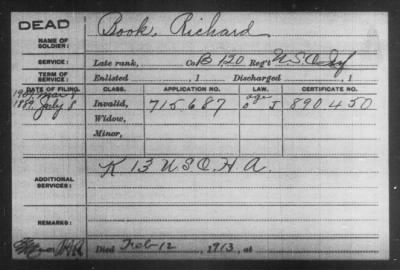 DEAD
NAME OF SOLDIER:
Book, Richard
SERVICE:
Late rank, Co. B 120 Reg't U.S.C. Inf
TERM OF SERVICE:
Enlisted , 1 Discharged , 1
DATE OF FILING. CLASS. APPLICATION NO. LAW. CERTIFICATE NO.
1889, July 8 Invalid, 715687 age 890450
Widow,
Minor,
ADDITIONAL SERVICES:
K 13 U.S.C.H.A.
REMARKS:
Died Feb-12, 1913, at